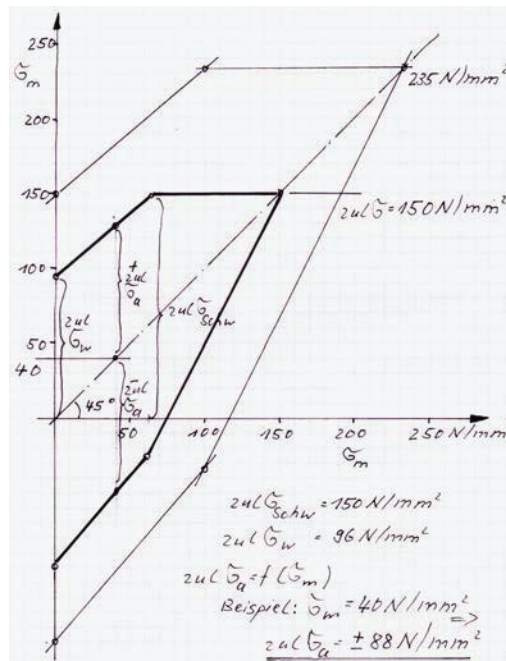 250
σ_m
200
150
100
50
40
235 N/mm²
zul σ = 150 N/mm²
zul σ_w
+ zul σ_a
zul σ_Schw
- zul σ_a
45°
50
100
150
200
250 N/mm
σ_m
zul σ_Schw = 150 N/mm²
zul σ_w = 96 N/mm²
zul σ_a = f (σ_m)
Beispiel: σ_m = 40 N/mm² =>
zul σ_a = ± 88 N/mm²